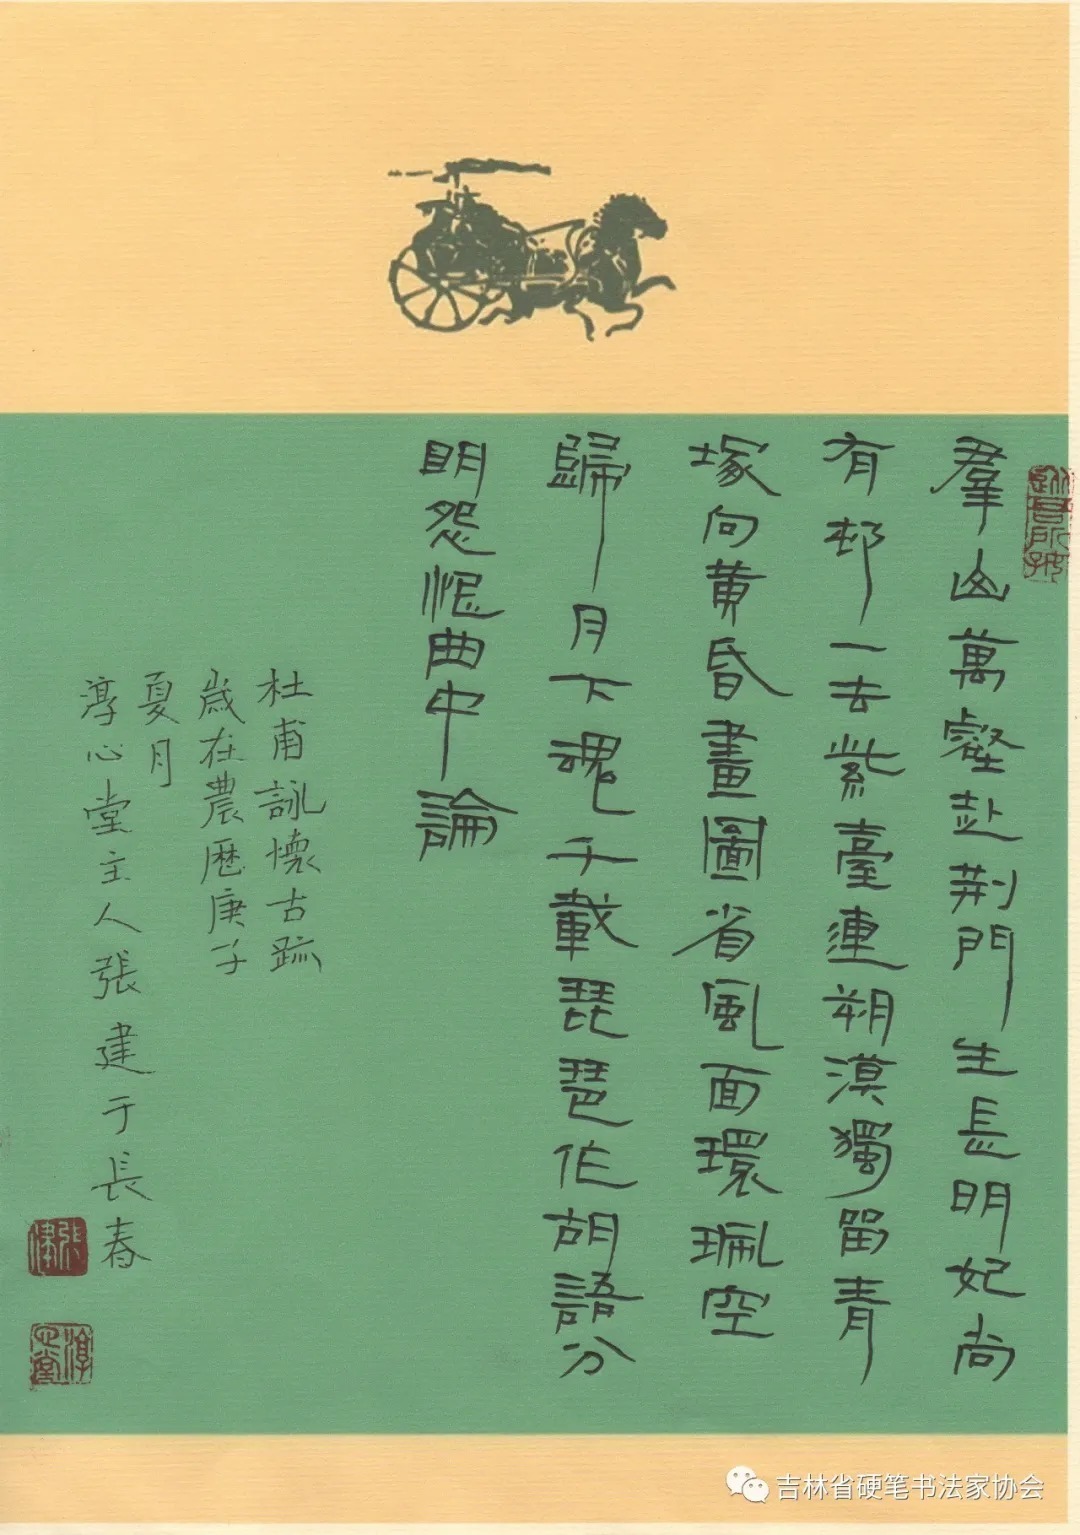 羣山萬壑赴荆門生長明妃尚
有邨一去紫臺連朔漠獨留青
塚向黄昏畫圖省風面環珮空
歸月下魂千載琵琶作胡語分
明怨恨曲中論
杜甫詠懷古跡
歲在農歴庚子
夏月
淳心堂主人張建于長春
張建
淳心堂
吉林省硬笔书法家协会